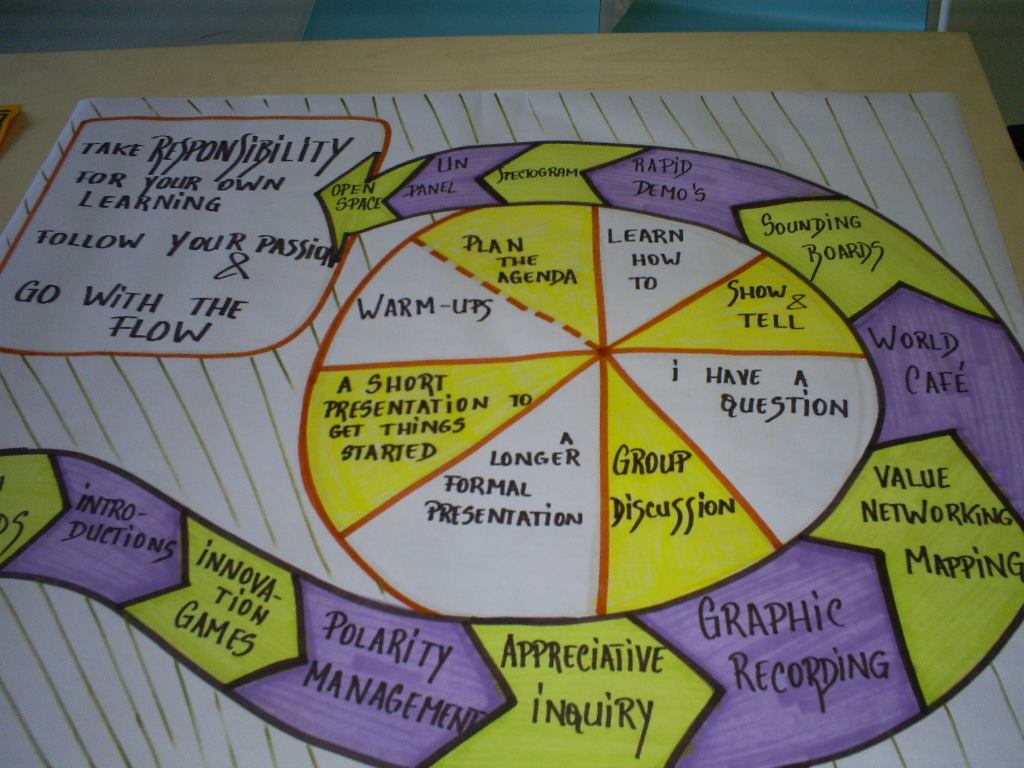 TAKE RESPONSIBILITY
FOR YOUR OWN
LEARNING
FOLLOW YOUR PASSION
&
GO WITH THE
FLOW
OPEN
SPACE
UN
PANEL
SPECTOGRAM
RAPID
DEMO'S
SOUNDING
BOARDS
WORLD
CAFÉ
VALUE
NETWORKING
MAPPING
GRAPHIC
RECORDING
APPRECIATIVE
INQUIRY
POLARITY
MANAGEMENT
INNOVA-
TION
GAMES
INTRO-
DUCTIONS
PLAN
THE
AGENDA
LEARN
HOW
TO
SHOW
&
TELL
I HAVE A
QUESTION
GROUP
DISCUSSION
A
LONGER
FORMAL
PRESENTATION
A SHORT
PRESENTATION TO
GET THINGS
STARTED
WARM-UPS